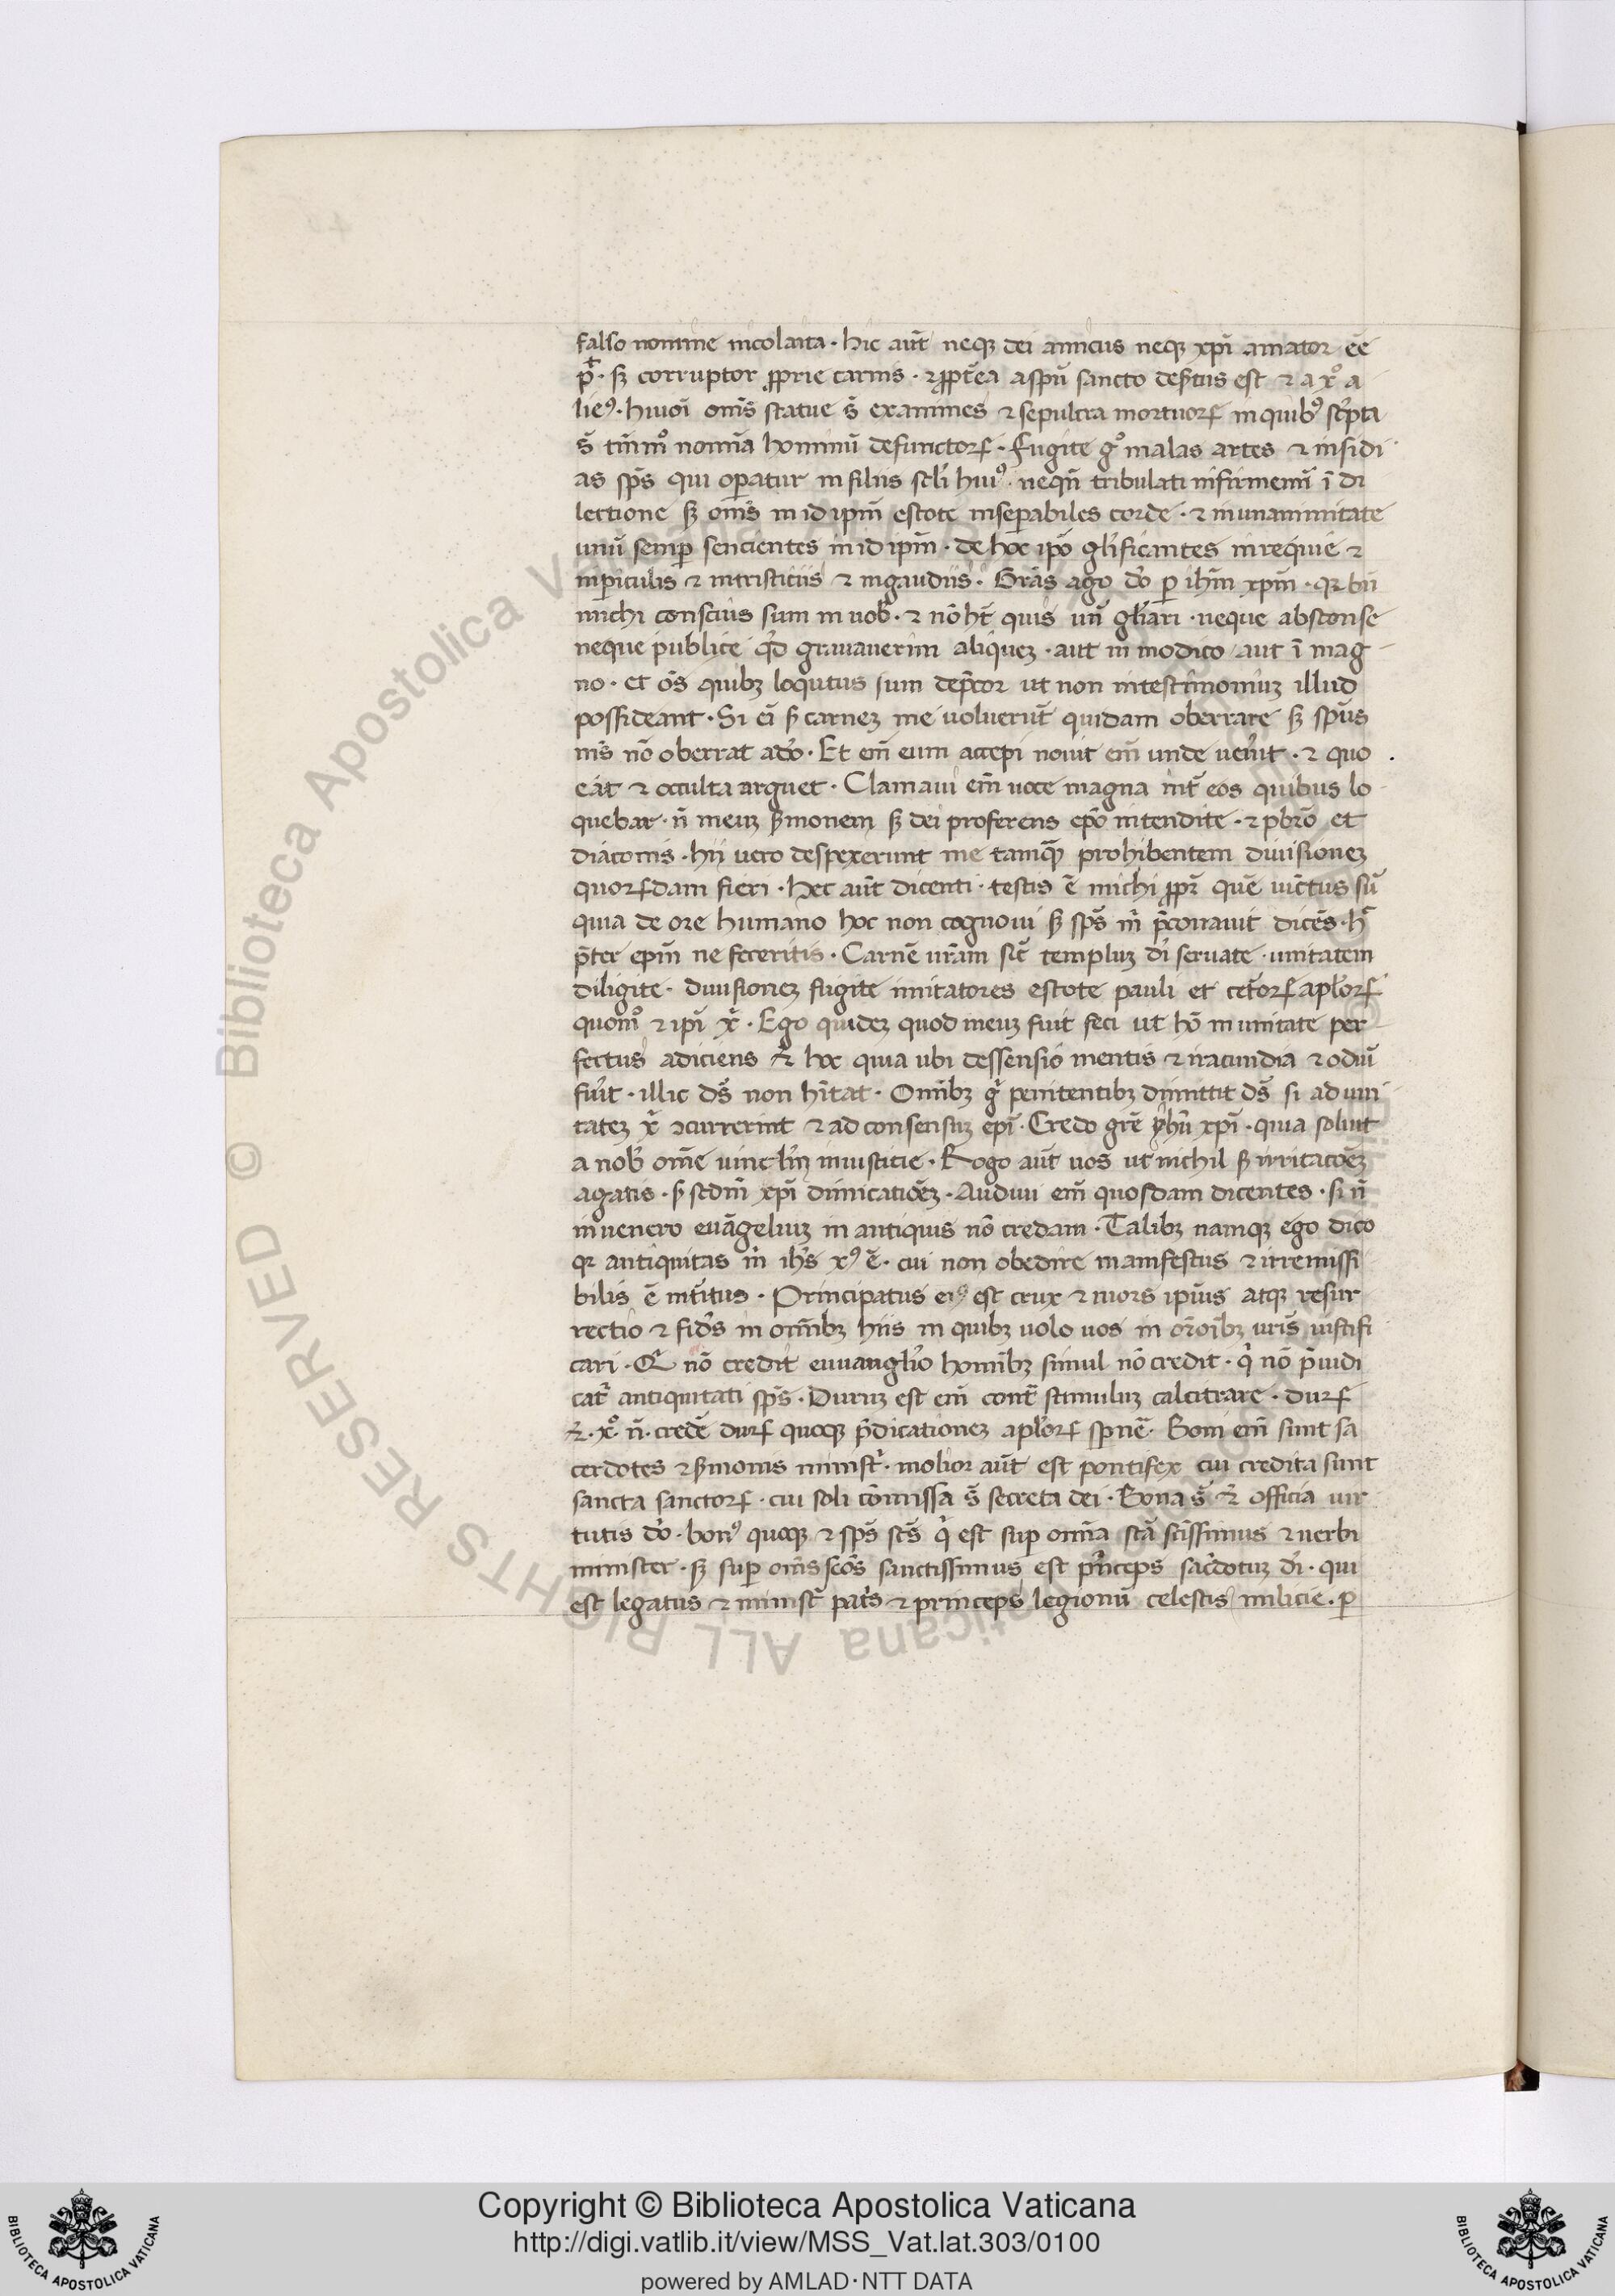 falso nomine nicolaita · hic aut̄ neqꝫ dei amicus neqꝫ xp̄i amator e͞e
p̄t · sꝫ corruptor ꝓprie carnis · ⁊ ꝓpt̄ea a spū sancto dep̄tus est ⁊ a x̊o a
lieꝰ · huiōi om̄s statue s̄ exanimes ⁊ sepulcra mortuoꝝ in quibꝰ sc̄pta
s̄ tm̄mo nomīa hominū defunctoꝝ · Fugite gͦ malas artes ⁊ insidi
as sp̄s qui oꝑatur in filiis sc̄li huiꝰ · neqn̄ tribulati infirmemī ī di
lectione sꝫ om̄s in id ip̄m estote insepabiles corde · ⁊ in unanimitate
unū semꝑ sencientes in id ip̄m · de hoc ip̄o gl̄ificantes in requie ⁊
in ꝑiculis ⁊ in tristiciis ⁊ in gaudiis · Grās ago do̅ ꝑ ihm̄ xpm̄ · qꝛ bn̄
michi conscius sum in vob̄ · ⁊ nō ht̄ quis un̄ gl̄iari · neque absconse
neque publice qd̄ gravaverim aliqueꝫ · aut in modico aut ī mag
no · et ōs quibꝫ loqutus sum dep̄cor ut non in testimoniuꝫ illud
possideant · Si ei̅ s̄ carneꝫ me voluerūt quidam oberrare sꝫ spūs
m̄s nō oberrat a do̅ · Et em̄ eum accepi novit em̄ unde ven̄it · ⁊ quo
eāt ⁊ occulta arguet · Clamavi em̄ voce magna int̄ eos quibus lo
quebar · n̄ meuꝫ s̄monem sꝫ dei proferens ep̄o intendite · ⁊ pbr̄o et
diaconis · hii vero despexerunt me tamqꝫ prohibentem divisioneꝫ
quoꝝdam fieri · hec aut̄ dicenti · testis ē michi ꝓpt̄ quē vīctus sū
quia de ore humano hoc non cognovi sꝫ sp̄s m̄ p̄conavit dicēs · h̄
p̄ter ep̄m ne feceritis · Carnē vr̄am sic̄ templuꝫ di̅ servate · unitatem
diligite · divisioneꝫ fugite imitatores estote pauli et cet̄oꝝ apl̄oꝝ
quomͦ ⁊ ip̄i x̄ · Ego quideꝫ quod meuꝫ fuit feci ut hō in unitate per
fectus adiciens ⁊ hoc quia ubi dessensio mentis ⁊ iracundia ⁊ odiū
fūit · illic ds̄ non hītat · Om̄ibꝫ gͦ penitentibꝫ dimittit ds̄ si ad uni
tateꝫ x̄ ꝯcurrerint ⁊ ad consensuꝫ ep̄i · Credo gr̄e yhū xp̄i · quia solvit
a nob̄ om̄e vincl̄uꝫ iniusticie · Rogo aut̄ vos ut nichil s̄ irritacōeꝫ
agatis · s̄ sedm̄ xp̄i dimicatiōeꝫ · Audivi em̄ quosdam dicentes · si n̄
invenero evāgeliuꝫ in antiquis nō credam · Talibꝫ namqꝫ ego dico
qꝛ antiquitas m̄ ihs̄ xꝰ ē · cui non obedire manifestus ⁊ irremissi
bilis ē int̄itus · Principatus eiꝰ est crux ⁊ mors ip̄ius atqꝫ resur
rectio ⁊ fid̄s in om̄ibꝫ hiis in quibꝫ volo vos in or̄oībꝫ vr̄is iustifi
cari · Qi nō credit euvanglīo homībꝫ simul nō credit · q̄ nō p̄iudi
cat̄ antiquitati sp̄s · Duruꝫ est em̄ cont̄ stimuluꝫ calcitrare · duꝝ
⁊ · x̊ · n̄ · credē duꝝ quoqꝫ p̄dicationeꝫ apl̄oꝝ sp̄nē · Boni em̄ sunt sa
cerdotes ⁊ s̄monis minist̄ · molior aut̄ est pontifex cui credita sunt
sancta sanctoꝝ · cui soli cōmissa s̄ secreta dei · Bona s̄ ⁊ officia vir
tutis do̅ · bonꝰ quoqꝫ ⁊ sp̄s sc̄s q̄ est sup om̄ia sc̄a sc̄issimus ⁊ verbi
minister · sꝫ sup om̄s sc̄os sanctissimus est p̄nceps sac̄dotuꝫ di̅ · qui
est legatus ⁊ minist̄ pat̄s ⁊ princeps legionū celestis milicie · ꝑ
Copyright © Biblioteca Apostolica Vaticana
http://digi.vatlib.it/view/MSS_Vat.lat.303/0100
powered by AMLAD·NTT DATA